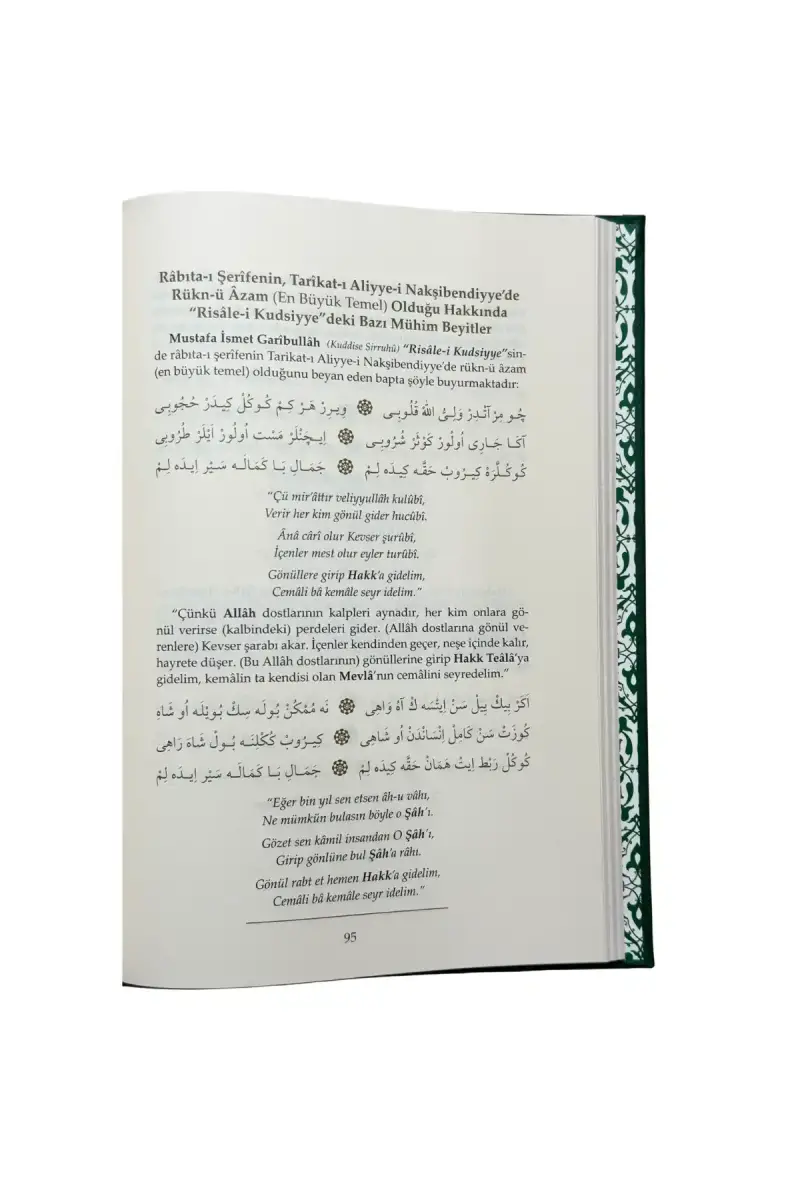 Râbıta-ı Şerîfenin, Tarîkat-ı Aliyye-i Nakşibendiyye’de
Rükn-ü Âzam (En Büyük Temel) Olduğu Hakkında
“Risâle-i Kudsiyye”deki Bazı Mühim Beyitler
Mustafa İsmet Garîbullâh (Kuddise Sirruhû) “Risâle-i Kudsiyye”sin-
de râbıta-ı şerîfenin Tarikat-ı Aliyye-i Nakşibendiyye’de rükn-ü âzam
(en büyük temel) olduğunu beyan eden bapta şöyle buyurmaktadır:
چُو مِرْآتْدِرْ وَلِىُّ اللّٰهْ قُلُوبِى ۞ وِيرِرْ هَرْ كِمْ كُوكُلْ كِيدَرْ حُجُوبِى
آكَا جَارِى اُولُورْ كَوْثَرْ شُرُوبِى ۞ اِيچَنْلَرْ مَسْت اُولُورْ اَيْلَرْ طُرُوبِى
كُوكُلَّرَهْ كِيرُوبْ حَقَّه كِيدَه لِمْ ۞ جَمَالِ بَا كَمَالَه سَيْر اِيدَه لِمْ
“Çü mir’âttır veliyyullâh kulûbi,
Verir her kim gönül gider hucûbi.
Ânâ câri olur Kevser şurûbi,
İçenler mest olur eyler turûbi.
Gönüllere girip Hakk’a gidelim,
Cemâli bâ kemâle seyr idelim.”
“Çünkü Allâh dostlarının kalpleri aynadır, her kim onlara gö-
nül verirse (kalbindeki) perdeleri gider. (Allâh dostlarına gönül ve-
renlere) Kevser şarabı akar. İçenler kendinden geçer, neşe içinde kalır,
hayrete düşer. (Bu Allâh dostlarının) gönüllerine girip Hakk Teâlâ’ya
gidelim, kemâlin ta kendisi olan Mevlâ’nın cemâlini seyredelim.”
اَكَرْ بِيكْ يِيلْ سَنْ اِيتْسَه كْ آهُ وَاهِى ۞ نَه مُمْكُنْ بُولَه سِكْ بُويْلَه اُو شَاهِ
كُوزَتْ سَنْ كَامِلْ اِنْسَانْدَنْ اُو شَاهِى ۞ كِيرُوبْ كُكْلِنَه بُولْ شَاهَ رَاهِى
كُوكُلْ رَبْط اِيتْ هَمَانْ حَقَّه كِيدَه لِمْ ۞ جَمَالِ بَا كَمَالَه سَيْر اِيدَه لِمْ
“Eğer bin yıl sen etsen âh-u vâhı,
Ne mümkün bulasın böyle o Şâh’ı.
Gözet sen kâmil insandan O Şâh’ı,
Girip gönlüne bul Şâh’a râhı.
Gönül rabt et hemen Hakk’a gidelim,
Cemâli bâ kemâle seyr idelim.”
95